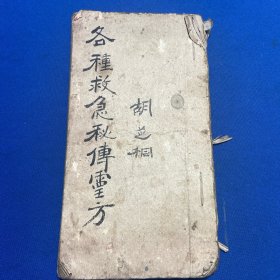 各種救急秘傳靈方
胡芝桐